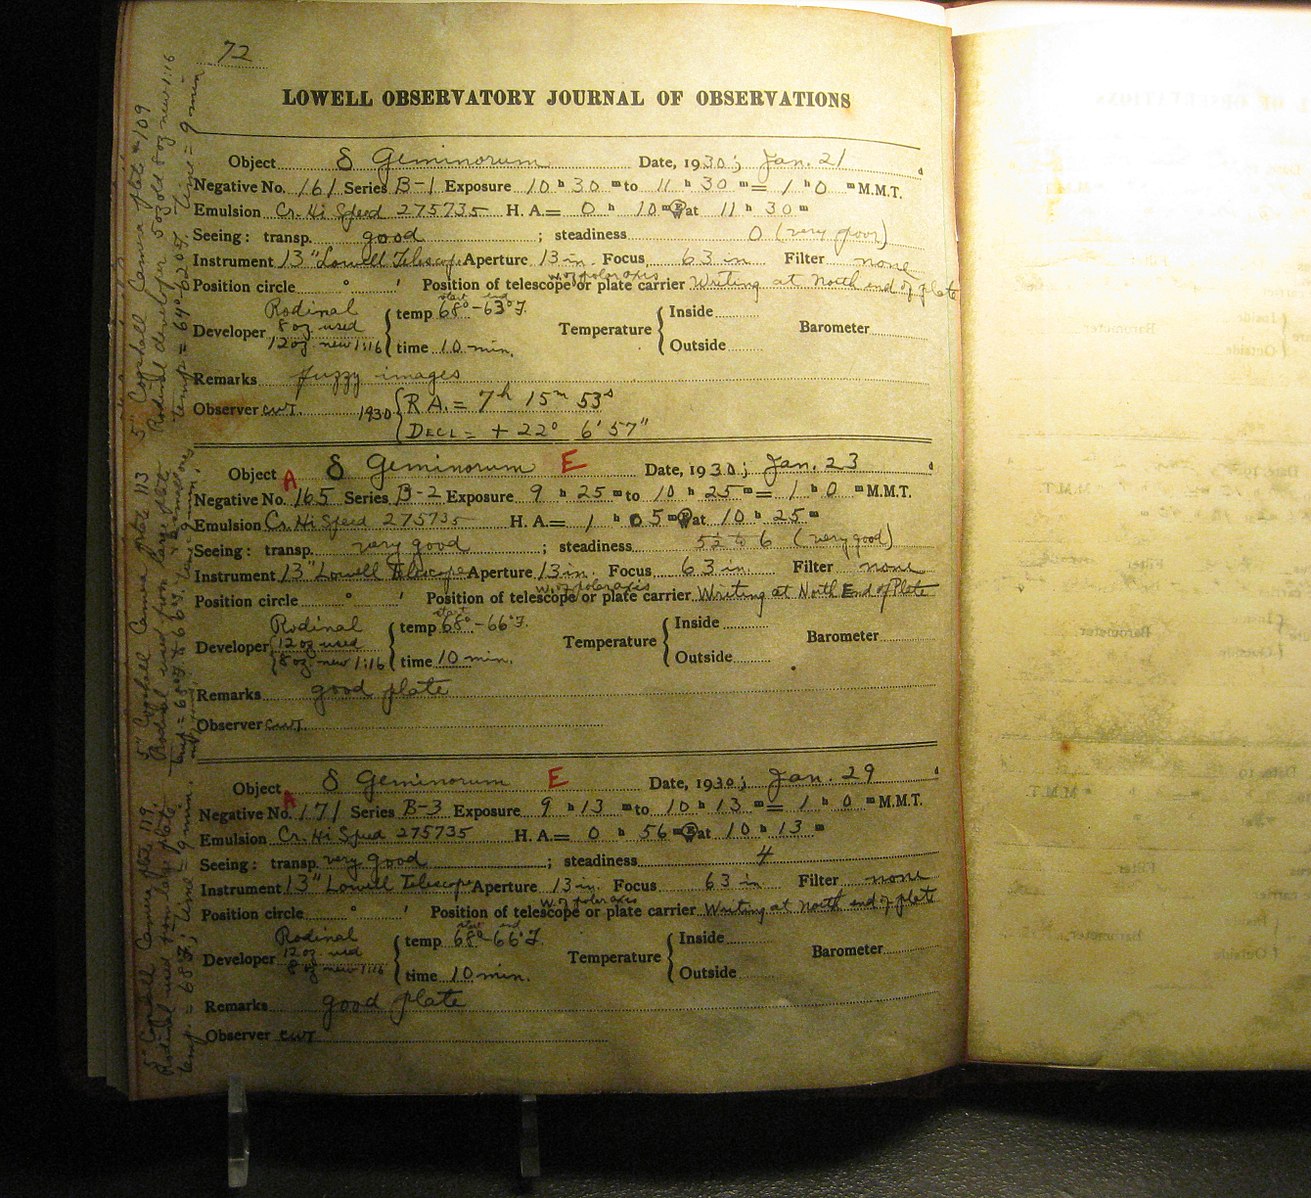 72
LOWELL OBSERVATORY JOURNAL OF OBSERVATIONS
Object δ Geminorum Date, 1930; Jan. 21
Negative No. 161 Series B-1 Exposure 10 h 30 m to 11 h 30 m = 1 h 0 m M.M.T.
Emulsion Cr. Hi Speed 275735 H. A. = 0 h 10 m E at 11 h 30 m
Seeing: transp. good ; steadiness 0 (very poor)
Instrument 13" Lowell Telescope Aperture 13 in. Focus 63 in Filter none
w. of polar axis
Position circle ° ' Position of telescope or plate carrier Writing at North end of plate
Developer Rodinal 8 oz used 12 oz new 1:16 temp start 68° - end 63° F. Temperature Inside Barometer
time 10 min. Outside
Remarks fuzzy images
Observer CWT. 1930 R A. = 7h 15m 53s
Decl = + 22° 6' 57"
Object δ Geminorum E Date, 1930; Jan. 23
A
Negative No. 165 Series B-2 Exposure 9 h 25 m to 10 h 25 m = 1 h 0 m M.M.T.
Emulsion Cr. Hi Speed 275735 H. A. = 1 h 05 m E at 10 h 25 m
Seeing: transp. very good ; steadiness 5½ to 6 (very good)
Instrument 13" Lowell Telescope Aperture 13 in. Focus 63 in. Filter none
w. of polar axis
Position circle ° ' Position of telescope or plate carrier Writing at North End of Plate
Developer Rodinal 12 oz used 8 oz new 1:16 temp start 68° - 66° F. Temperature Inside Barometer
time 10 min. Outside
Remarks good plate
Observer CWT.
Object δ Geminorum E Date, 1930; Jan. 29
A
Negative No. 171 Series B-3 Exposure 9 h 13 m to 10 h 13 m = 1 h 0 m M.M.T.
Emulsion Cr. Hi Speed 275735 H. A. = 0 h 56 m E at 10 h 13 m
Seeing: transp. very good ; steadiness 4
Instrument 13" Lowell Telescope Aperture 13 in. Focus 63 in Filter none
w. of polar axis
Position circle ° ' Position of telescope or plate carrier Writing at North end of plate
Developer Rodinal 12 oz used 8 oz new 1:16 temp start 68° - end 66° F. Temperature Inside Barometer
time 10 min. Outside
Remarks good plate
Observer CWT
5" Cogshall Camera plate #109
Rodinal developer 5 oz old 8 oz new 1:16
temp = 64° - 62° F. time = 9 min
5" Cogshall Camera plate 113
Rodinal used from large plate
5" Cogshall Camera plate 119
Rodinal used from large plate
temp. = 68° F; time = 9 min.